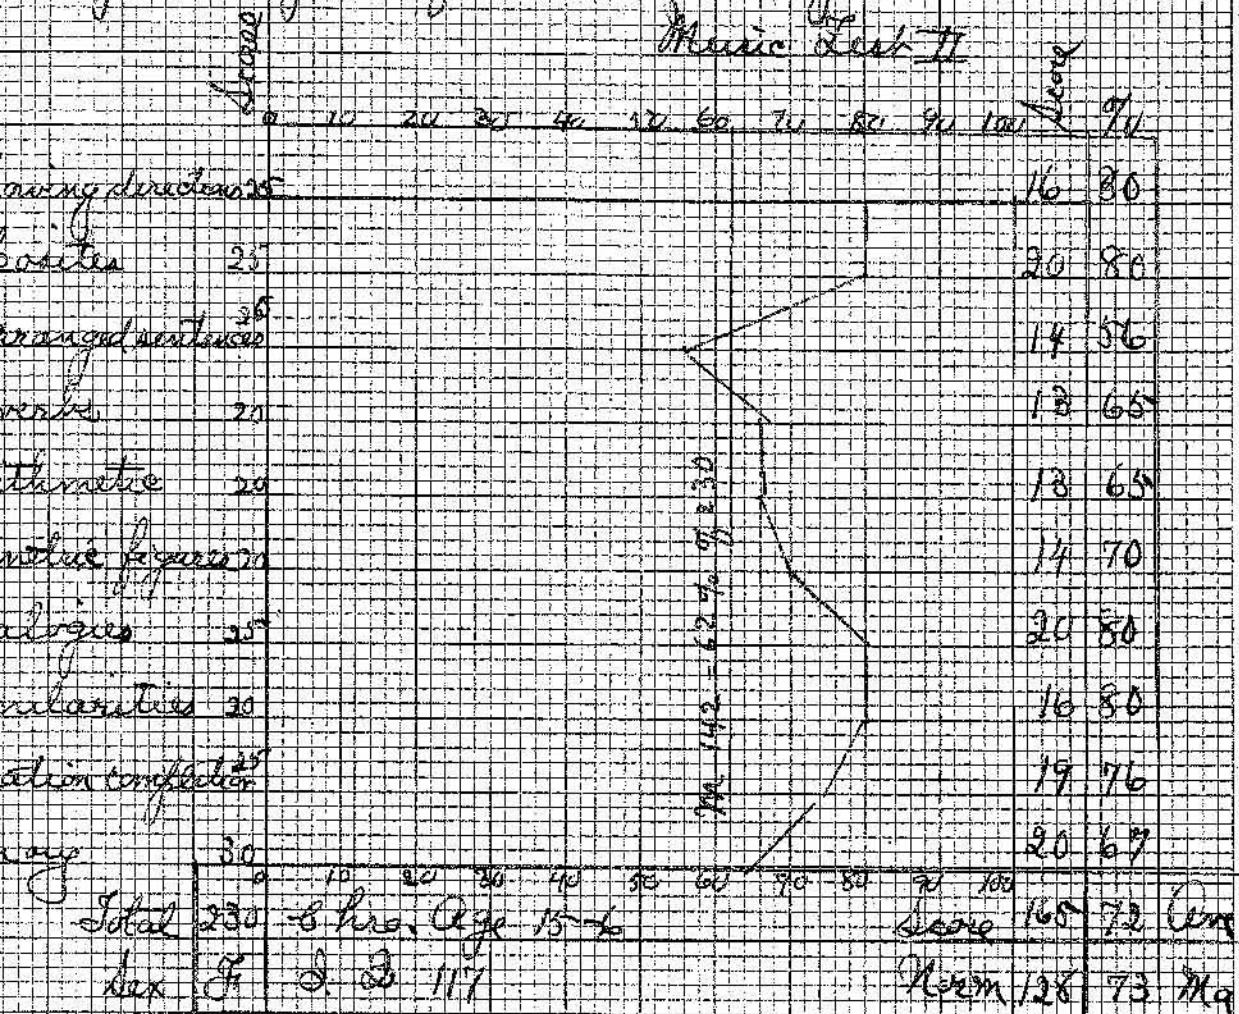 Music Test II
Score
0 10 20 30 40 50 60 70 80 90 100 Score %
owing directions 16 80
posites 25 20 80
rranged sentences 25 14 56
verbs 20 13 65
ithmetic 20 13 65
metric figures 20 14 70
alogies 25 20 80
milarities 20 16 80
ation completion 25 19 76
ory 30 20 67
M 142 = 62% of 230
0 10 20 30 40 50 60 70 80 90 100
Total 230 Chro. Age 15-6 Score 165 72
Sex F I. Q 117 Norm 128 73